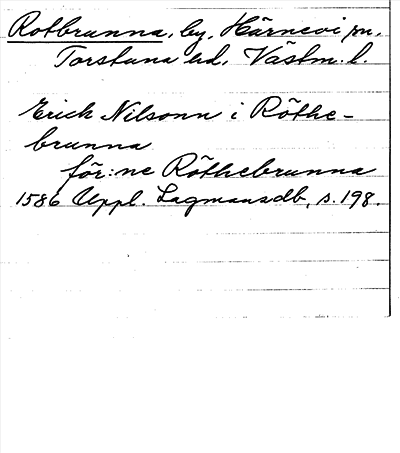 Rotbrunna, by, Härnevi sn,
Torstuna hd, Västm. l.
Erick Nilsonn i Röthe-
brunna
för:ne Röthebrunna
1586 Uppl. Lagmansdb, s. 198.